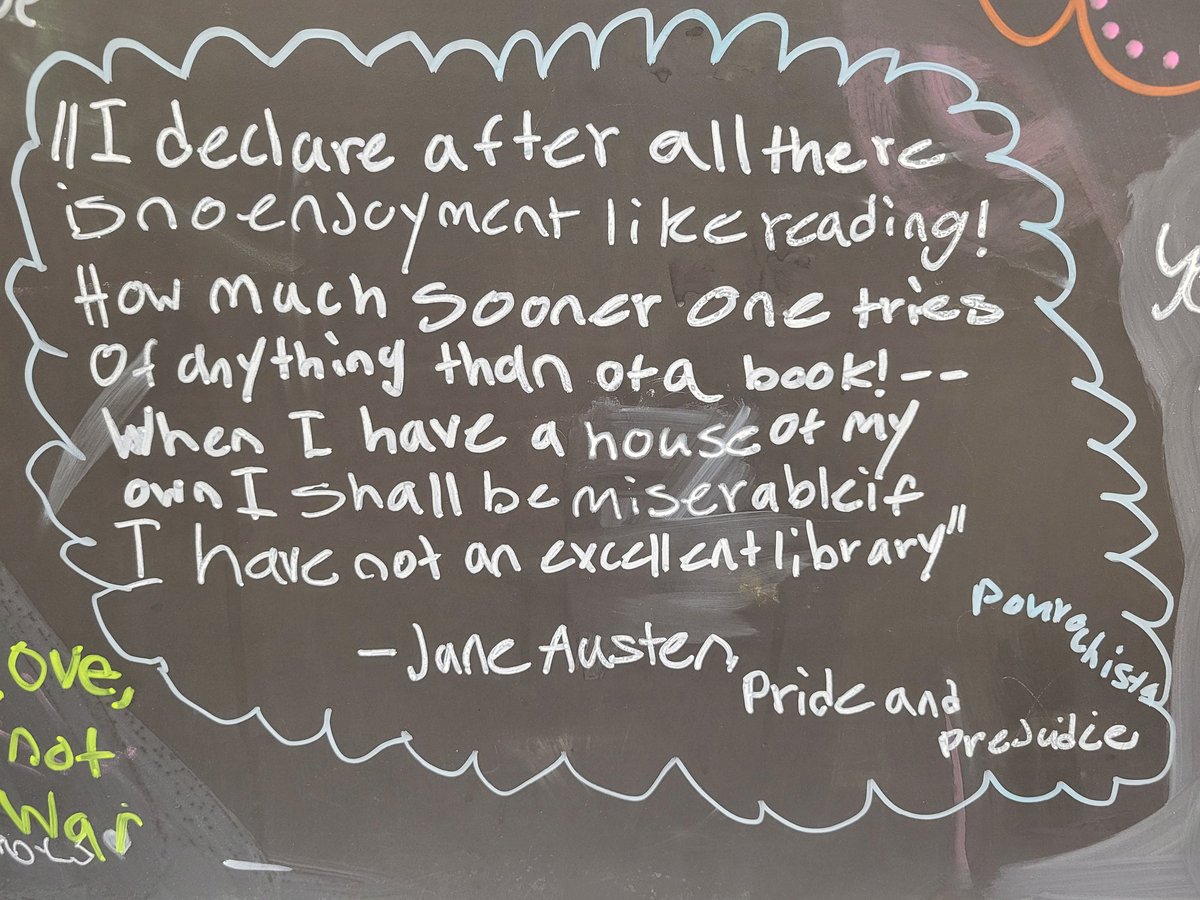 "I declare after all there
is no enjoyment like reading!
How much sooner one tries
Of anything than of a book! --
When I have a house of my
own I shall be miserable if
I have not an excellent library"
- Jane Austen,
Pride and
prejudice
ove,
not
War